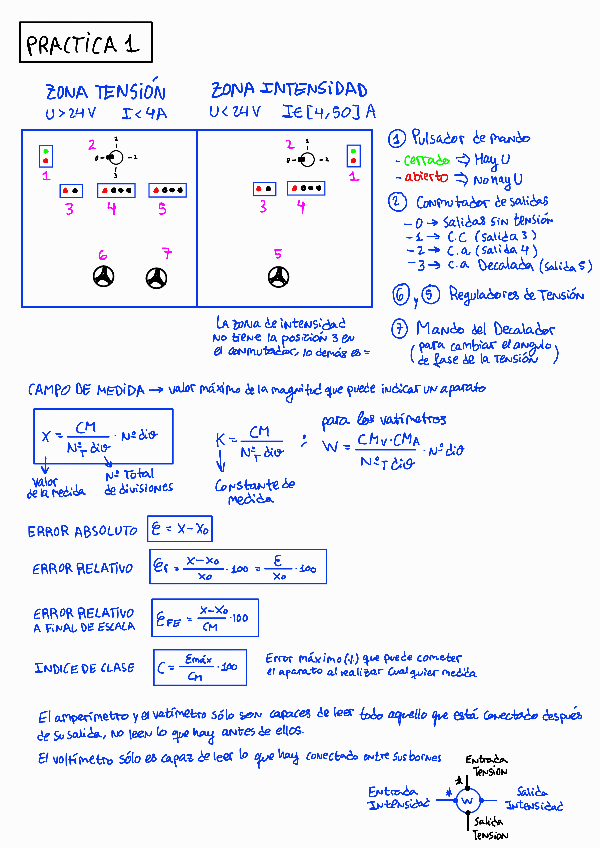 PRACTICA 1
ZONA TENSIÓN
U > 24 V   I < 4A
ZONA INTENSIDAD
U < 24 V   I ∈ [4,50] A
2
1
0
-2
3
1
3
4
5
6
7
2
1
0
-2
1
3
4
5
① Pulsador de mando
- cerrado => Hay U
- abierto => No hay U
② Conmutador de salidas
- 0 → Salidas sin tensión
- 1 → C.C (salida 3)
- 2 → C.a (salida 4)
- 3 → C.a Decalada (salida 5)
⑥ y ⑤ Reguladores de Tensión
⑦ Mando del Decalador
(para cambiar el angulo
de fase de la tensión)
La zona de intensidad
no tiene la posición 3 en
el conmutador, lo demás es =
CAMPO DE MEDIDA → valor máximo de la magnitud que puede indicar un aparato
X = CM / Nº_T div · Nº div
valor de la medida
Nº Total de divisiones
K = CM / Nº_T div ;
Constante de medida
para los vatímetros
W = CM_V · CM_A / Nº_T div · Nº div
ERROR ABSOLUTO   Ɛ = X - X₀
ERROR RELATIVO   Ɛr = X - X₀ / X₀ · 100 = Ɛ / X₀ · 100
ERROR RELATIVO
A FINAL DE ESCALA   Ɛ_FE = X - X₀ / CM · 100
INDICE DE CLASE   C = Ɛmáx / CM · 100
Error máximo (%) que puede cometer
el aparato al realizar cualquier medida
El amperímetro y el vatímetro sólo son capaces de leer todo aquello que está conectado después
de su salida, no leen lo que hay antes de ellos.
El voltímetro sólo es capaz de leer lo que hay conectado entre sus bornes
Entrada
Tension
Entrada
Intensidad
*
*
W
Salida
Intensidad
Salida
Tension